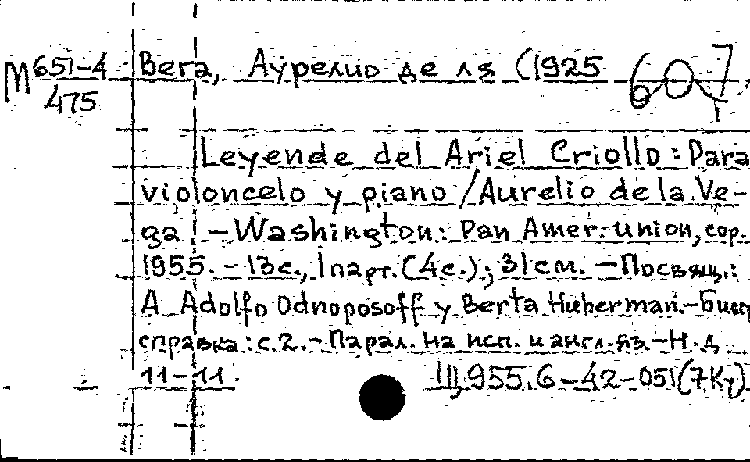 М 651-4
475
Вега, Аурелио де ля (1925
607
Leyende del Ariel Criollo: Para
violoncelo y piano / Aurelio de la Ve-
ga. - Washington: Pan Amer. union, cop.
1955. - 13 с., 1 парт. (4 с.); 31 см. - Посвящ.:
A Adolfo Odnoposoff y Berta Huberman. -
справка: с. 2. - Парал. на исп. и англ. яз. - Н. д.
11-11.
Ш,955.6-42-051(7Ку)